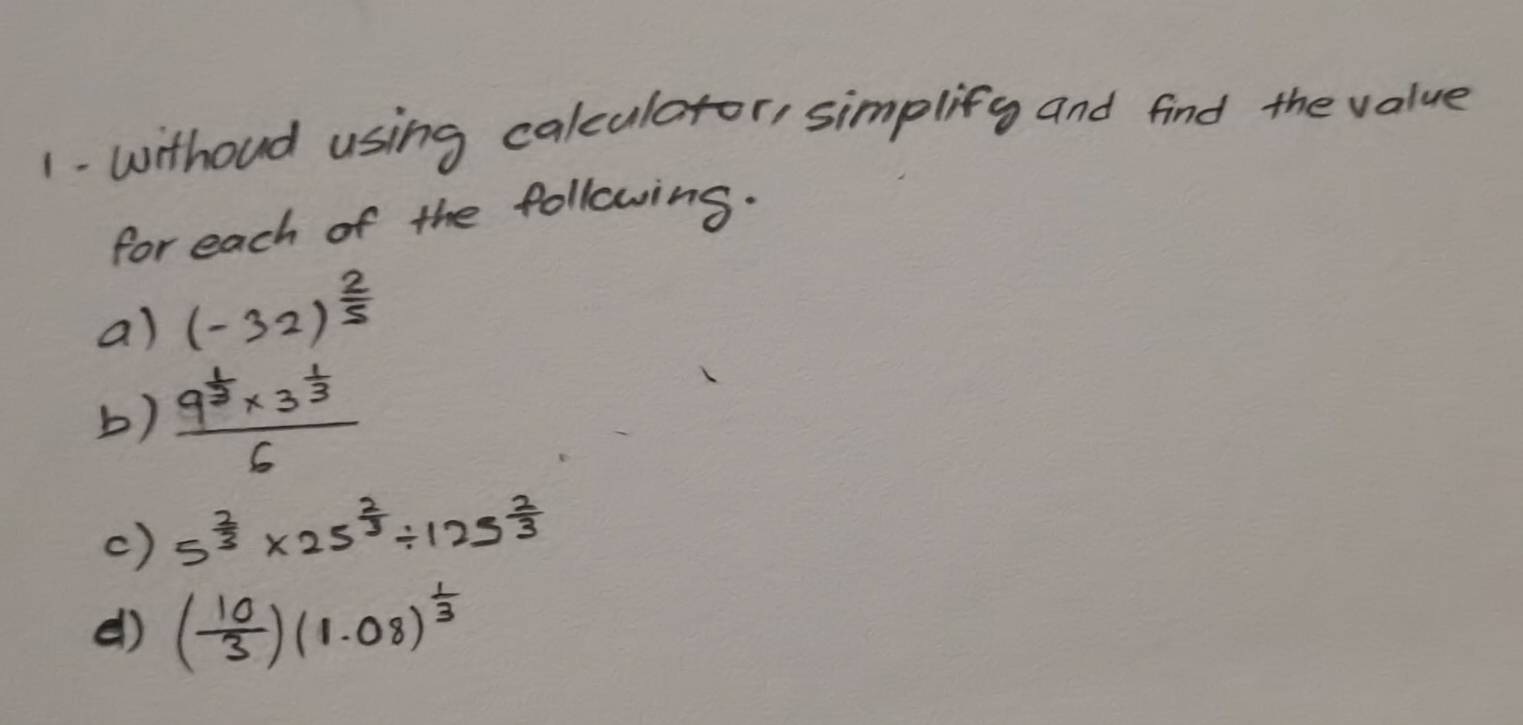 1 - withoud using calculator, simplify and find the value
for each of the following.
a) (-32)^(2/5)
b) (9^(1/3) × 3^(1/3))/6
c) 5^(2/3) × 25^(2/3) ÷ 125^(2/3)
d) (10/3)(1.08)^(1/3)